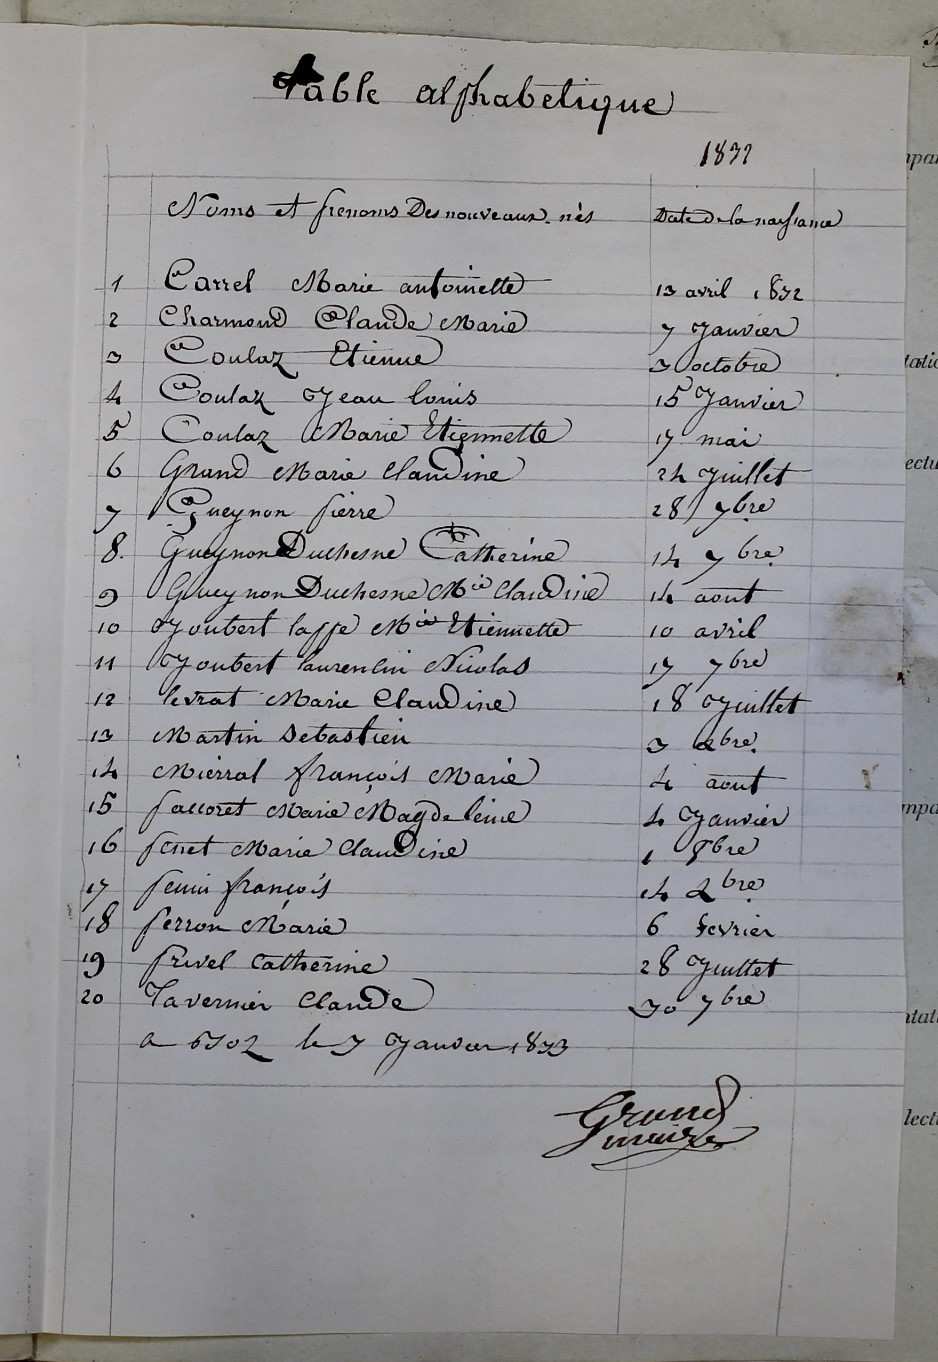 Table alphabetique
1832
Noms et prenoms Des nouveaux nés Date de la naissance
1 Carrel Marie antoinette 13 avril 1832
2 Charmond Claude Marie 7 Janvier
3 Coulaz Etienne 3 octobre
4 Coulaz Jean louis 15 Janvier
5 Coulaz Marie Etiennette 17 mai
6 Grand Marie Claudine 24 Juillet
7 Gueynon pierre 28 7bre
8. Gueynon Duchesne Catherine 14 7bre.
9 Gueynon Duchesne Mie Claudine 14 aout
10 Joubert laffe Mie Etiennette 10 avril
11 Joubert laurentin Nicolas 17 7bre
12 levrat Marie Claudine 18 Juillet
13 Martin Sebastien 3 xbre.
14 Miérral françois Marie 4 aout
15 paccoret Marie Magdeleine 4 Janvier
16 penet Marie Claudine 1 8bre
17 françois 14 xbre.
18 perron Marie 6 fevrier
19 privel Catherine 28 Juillet
20 Tavernier Claude 30 7bre
a le 7 Janvier 1833
Grand
maire